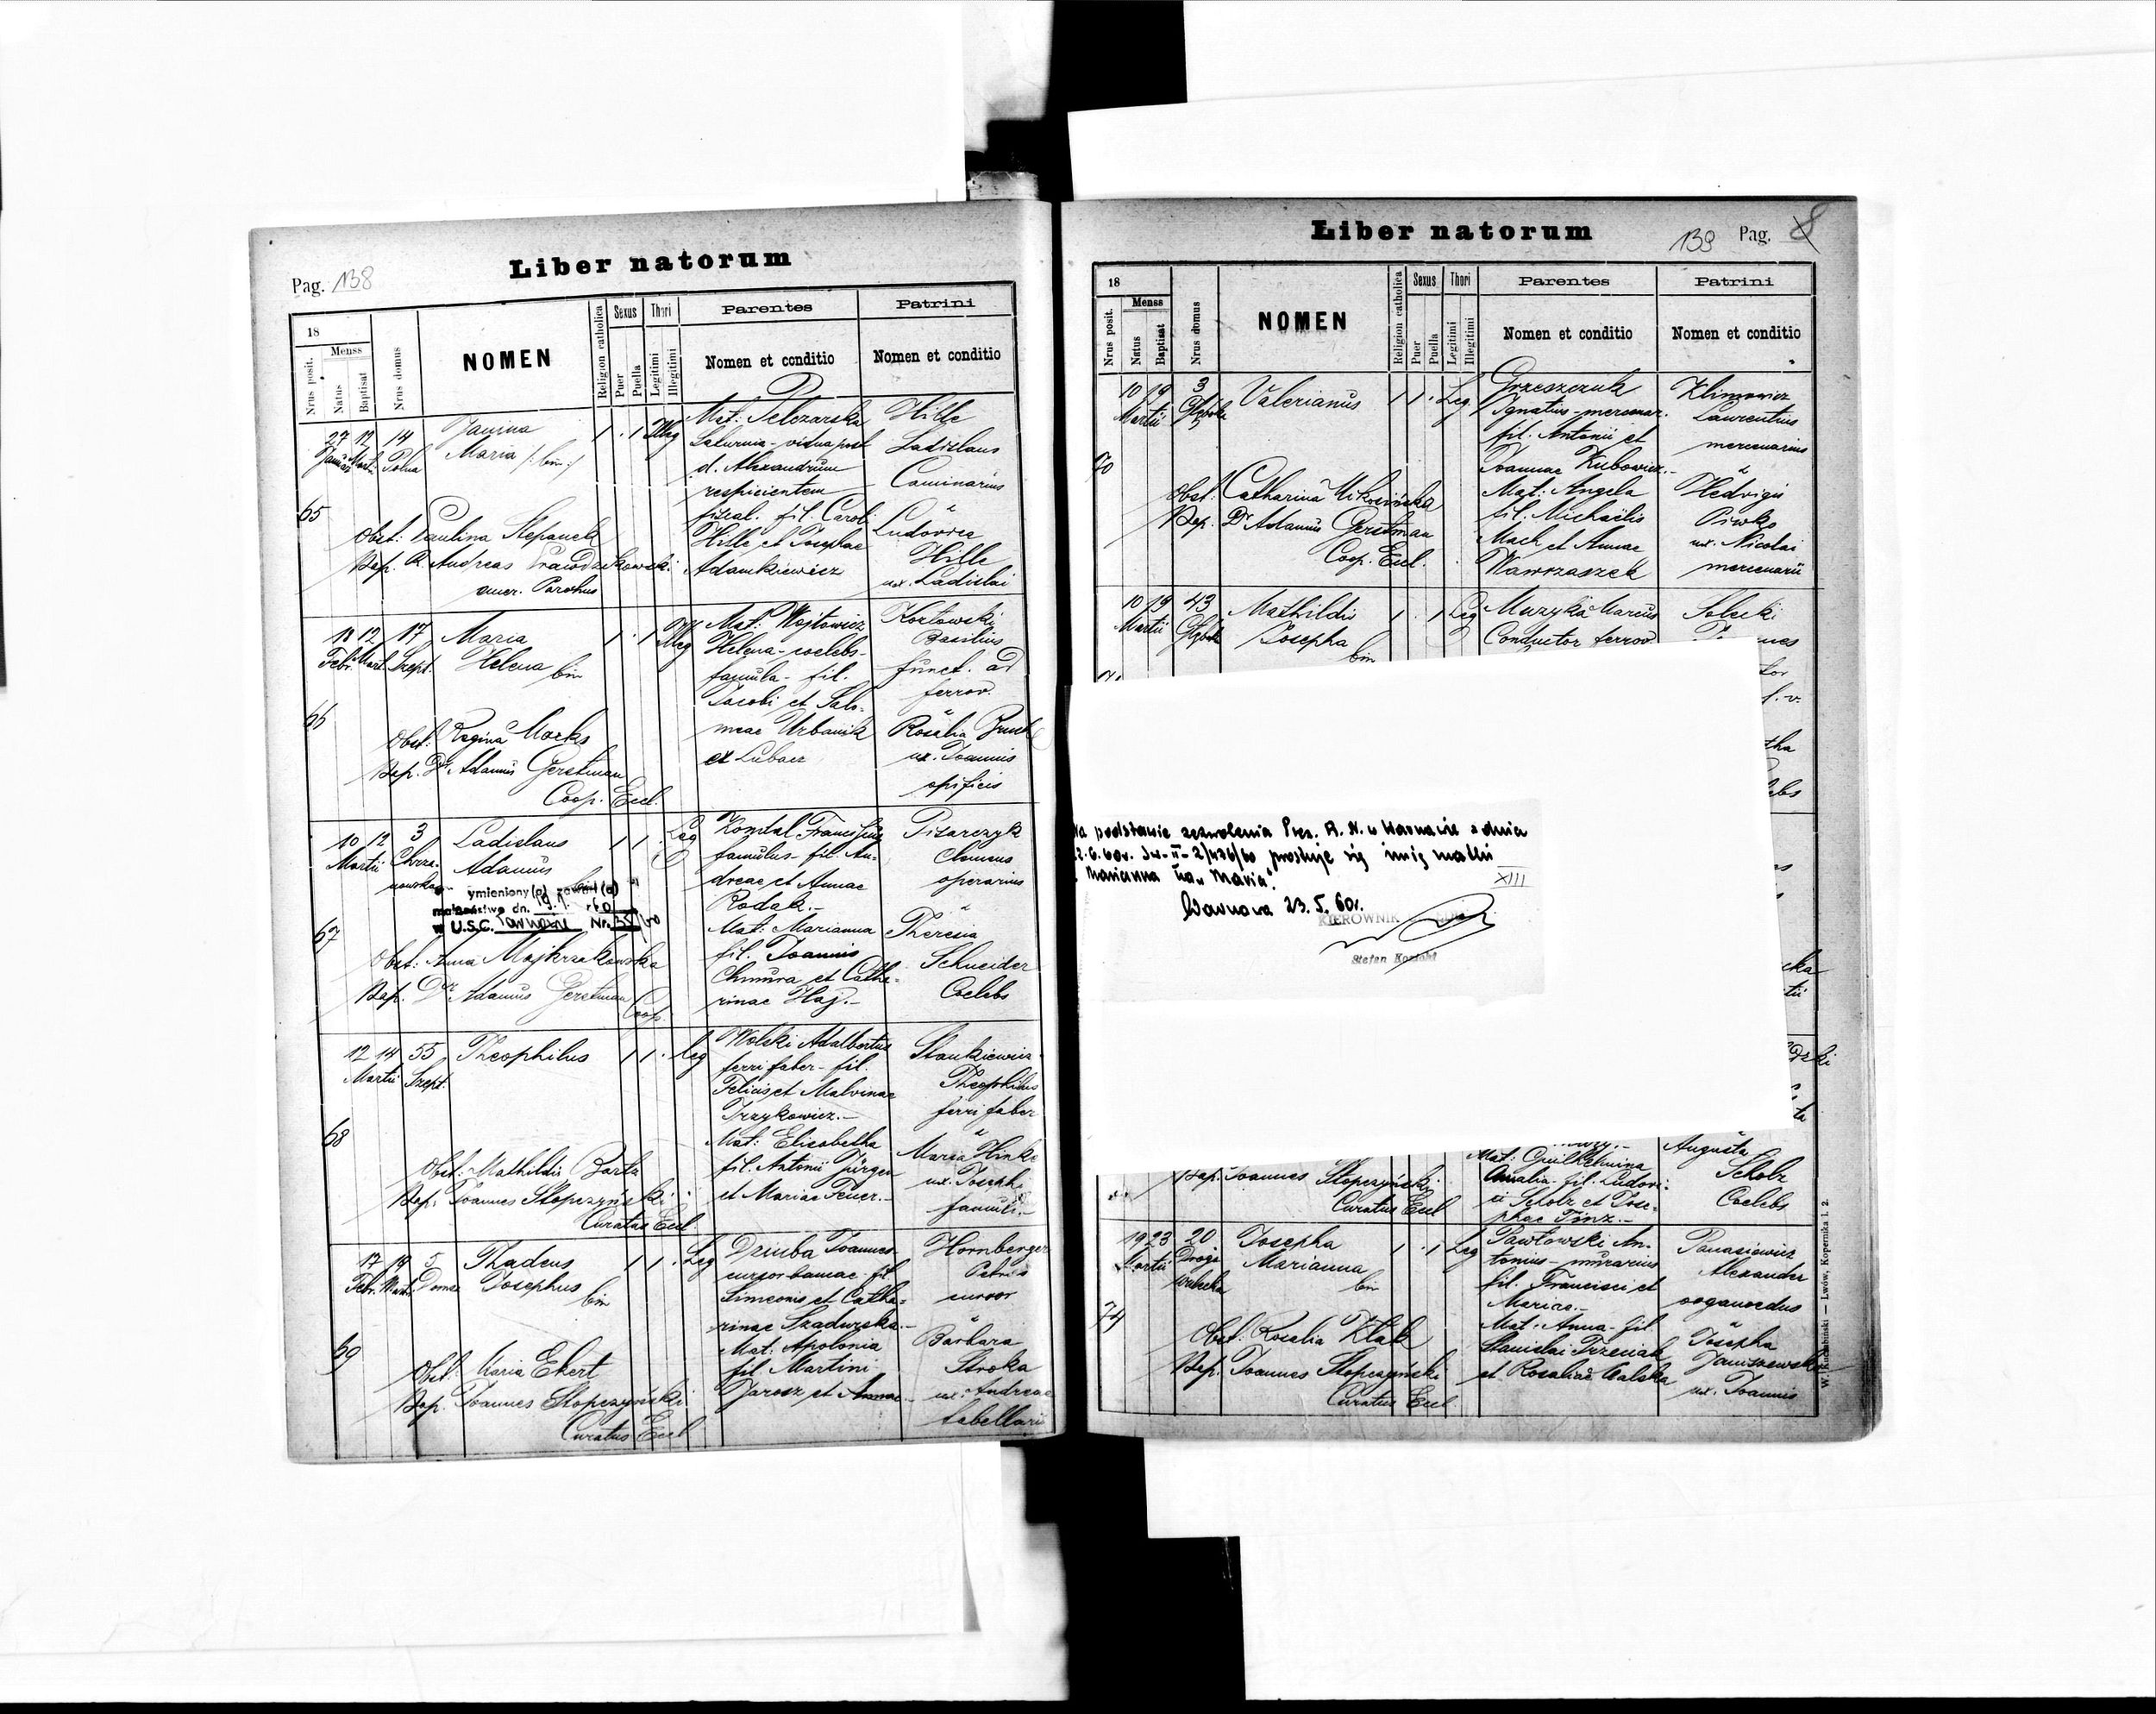 Pag. 138
Liber natorum
18
Nrus posit.
Menss
Natus
Baptisat
Nrus domus
NOMEN
Religion catholica
Sexus
Puer
Puella
Thori
Legitimi
Illegitimi
Parentes
Nomen et conditio
Patrini
Nomen et conditio
65
27 12 14
Polna
Janina
Maria /:bin:/
1 . 1 Illeg
Obst: Paulina Stepanek
Bap. R. Andreas
emer. Parochus
Mat: Pelczarska
vidua post
d. Alexandrum
respicientem
fiscal. fil. Caroli
Hille et Josephae
Adamkiewicz
Hille
Ladislaus
Caminarius
Ludovica
Hille
ux. Ladislai
66
18 12 17
Febr. Mart. Szept.
Maria
Helena bin
1 . 1 Illeg
Obst: Regina Macks
Bap. Dr Adamus Gerstman
Coop. Eccl.
Mat: Wojtowicz
Helena - coelebs -
famula - fil.
Jacobi et Salo-
meae Urbanik
ex
Kozłowski
Basilius
funct. ad
ferrov.
Rosalia
ux. Joannis
opificis
67
10 12 3
Martii
Ladislaus
Adamus
bin
1 1 . Leg
ymieniony(a) zawarł(a)
małżeństwo dn.
w U.S.C. Tarnowie Nr.
Obst: Anna Majkrzakowska
Bap. Dr Adamus Gerstman
Coop.
famulus - fil. An-
dreae et Annae
Rodak.-
Mat: Marianna
fil. Joannis
Chmura et Catha-
rinae Haj.-
Pisarczyk
Clemens
operarius
Theresia
Schneider
Coelebs
68
12 14 55
Martii Szept.
Theophilus
1 1 . Leg
Obst: Mathildis Bartz
Bap. Joannes Słopczyński
Curatus Eccl.
Wolski Adalbertus
ferri faber - fil.
Felicis et Malvinae
Trzykowicz.-
Mat: Elisabetha
fil. Antonii Jürgen
et Mariae Feuer.-
Stankiewicz
Theophilus
ferri faber
Maria Hinke
ux. Josephi
famuli.-
69
17 19 5
Febr. Martii
Thadeus
Josephus
bin
1 1 . Leg
Obst: Maria Ekert
Bap. Joannes Słopczyński
Curatus Eccl.
Dziuba Joannes
cursor bancae fil.
Simeonis et Catha-
rinae Szadurska.-
Mat: Apolonia
fil. Martini
Jarosz et Annae.-
Hornberger
Petrus
cursor
Barbara
Sroka
ux. Andreae
tabellarii
Liber natorum
139 Pag. 8
18
Nrus posit.
Menss
Natus
Baptisat
Nrus domus
NOMEN
Religion catholica
Sexus
Puer
Puella
Thori
Legitimi
Illegitimi
Parentes
Nomen et conditio
Patrini
Nomen et conditio
70
10 19 3
Martii
Valerianus
1 1 . Leg
Obst: Catharina
Bap. Dr Adamus Gerstman
Coop. Eccl.
Grzeszczuk
Ignatius - mercenar.
fil. Antonii et
Joannae Kubowicz.-
Mat: Angela
fil. Michaëlis
Mach et Annae
Wawrzaszek
Klimowicz
Laurentius
mercenarius
Hedvigis
Piwko
ux. Nicolai
mercenarii
10 19 43
Martii
Mathildis
Josepha
bin
1 . 1 Leg
Muzyka Marcus
Conductor ferrov.
Solecki
Na podstawie zezwolenia Prez. R. N. w Tarnowie z dnia
prostuje się imię matki
"Marianna" na "Maria".
XIII
Tarnowa 23.5.60r.
KIEROWNIK
Stefan
Bap. Joannes Słopczyński
Curatus Eccl
Mat: Guilhelmina
Amalia fil. Ludovi-
ci Scholz et Jose-
phae Tinz.-
Augusta
Scholz
Coelebs
74
19 23 20
Martii Droga
Josepha
Marianna
bin
1 . 1 Leg
Obst: Rosalia Ktak
Bap. Joannes Słopczyński
Curatus Eccl.
Pawłowski An-
tonius - murarius
fil. Francisci et
Mariae.-
Mat: Anna - fil.
Stanislai Trzeciak
et Rosaliae Walska
Panasiewicz
Alexander
organoedus
Josepha
Janiszewska
ux. Joannis
W. Kuczabiński — Lwów, Kopernika l. 2.